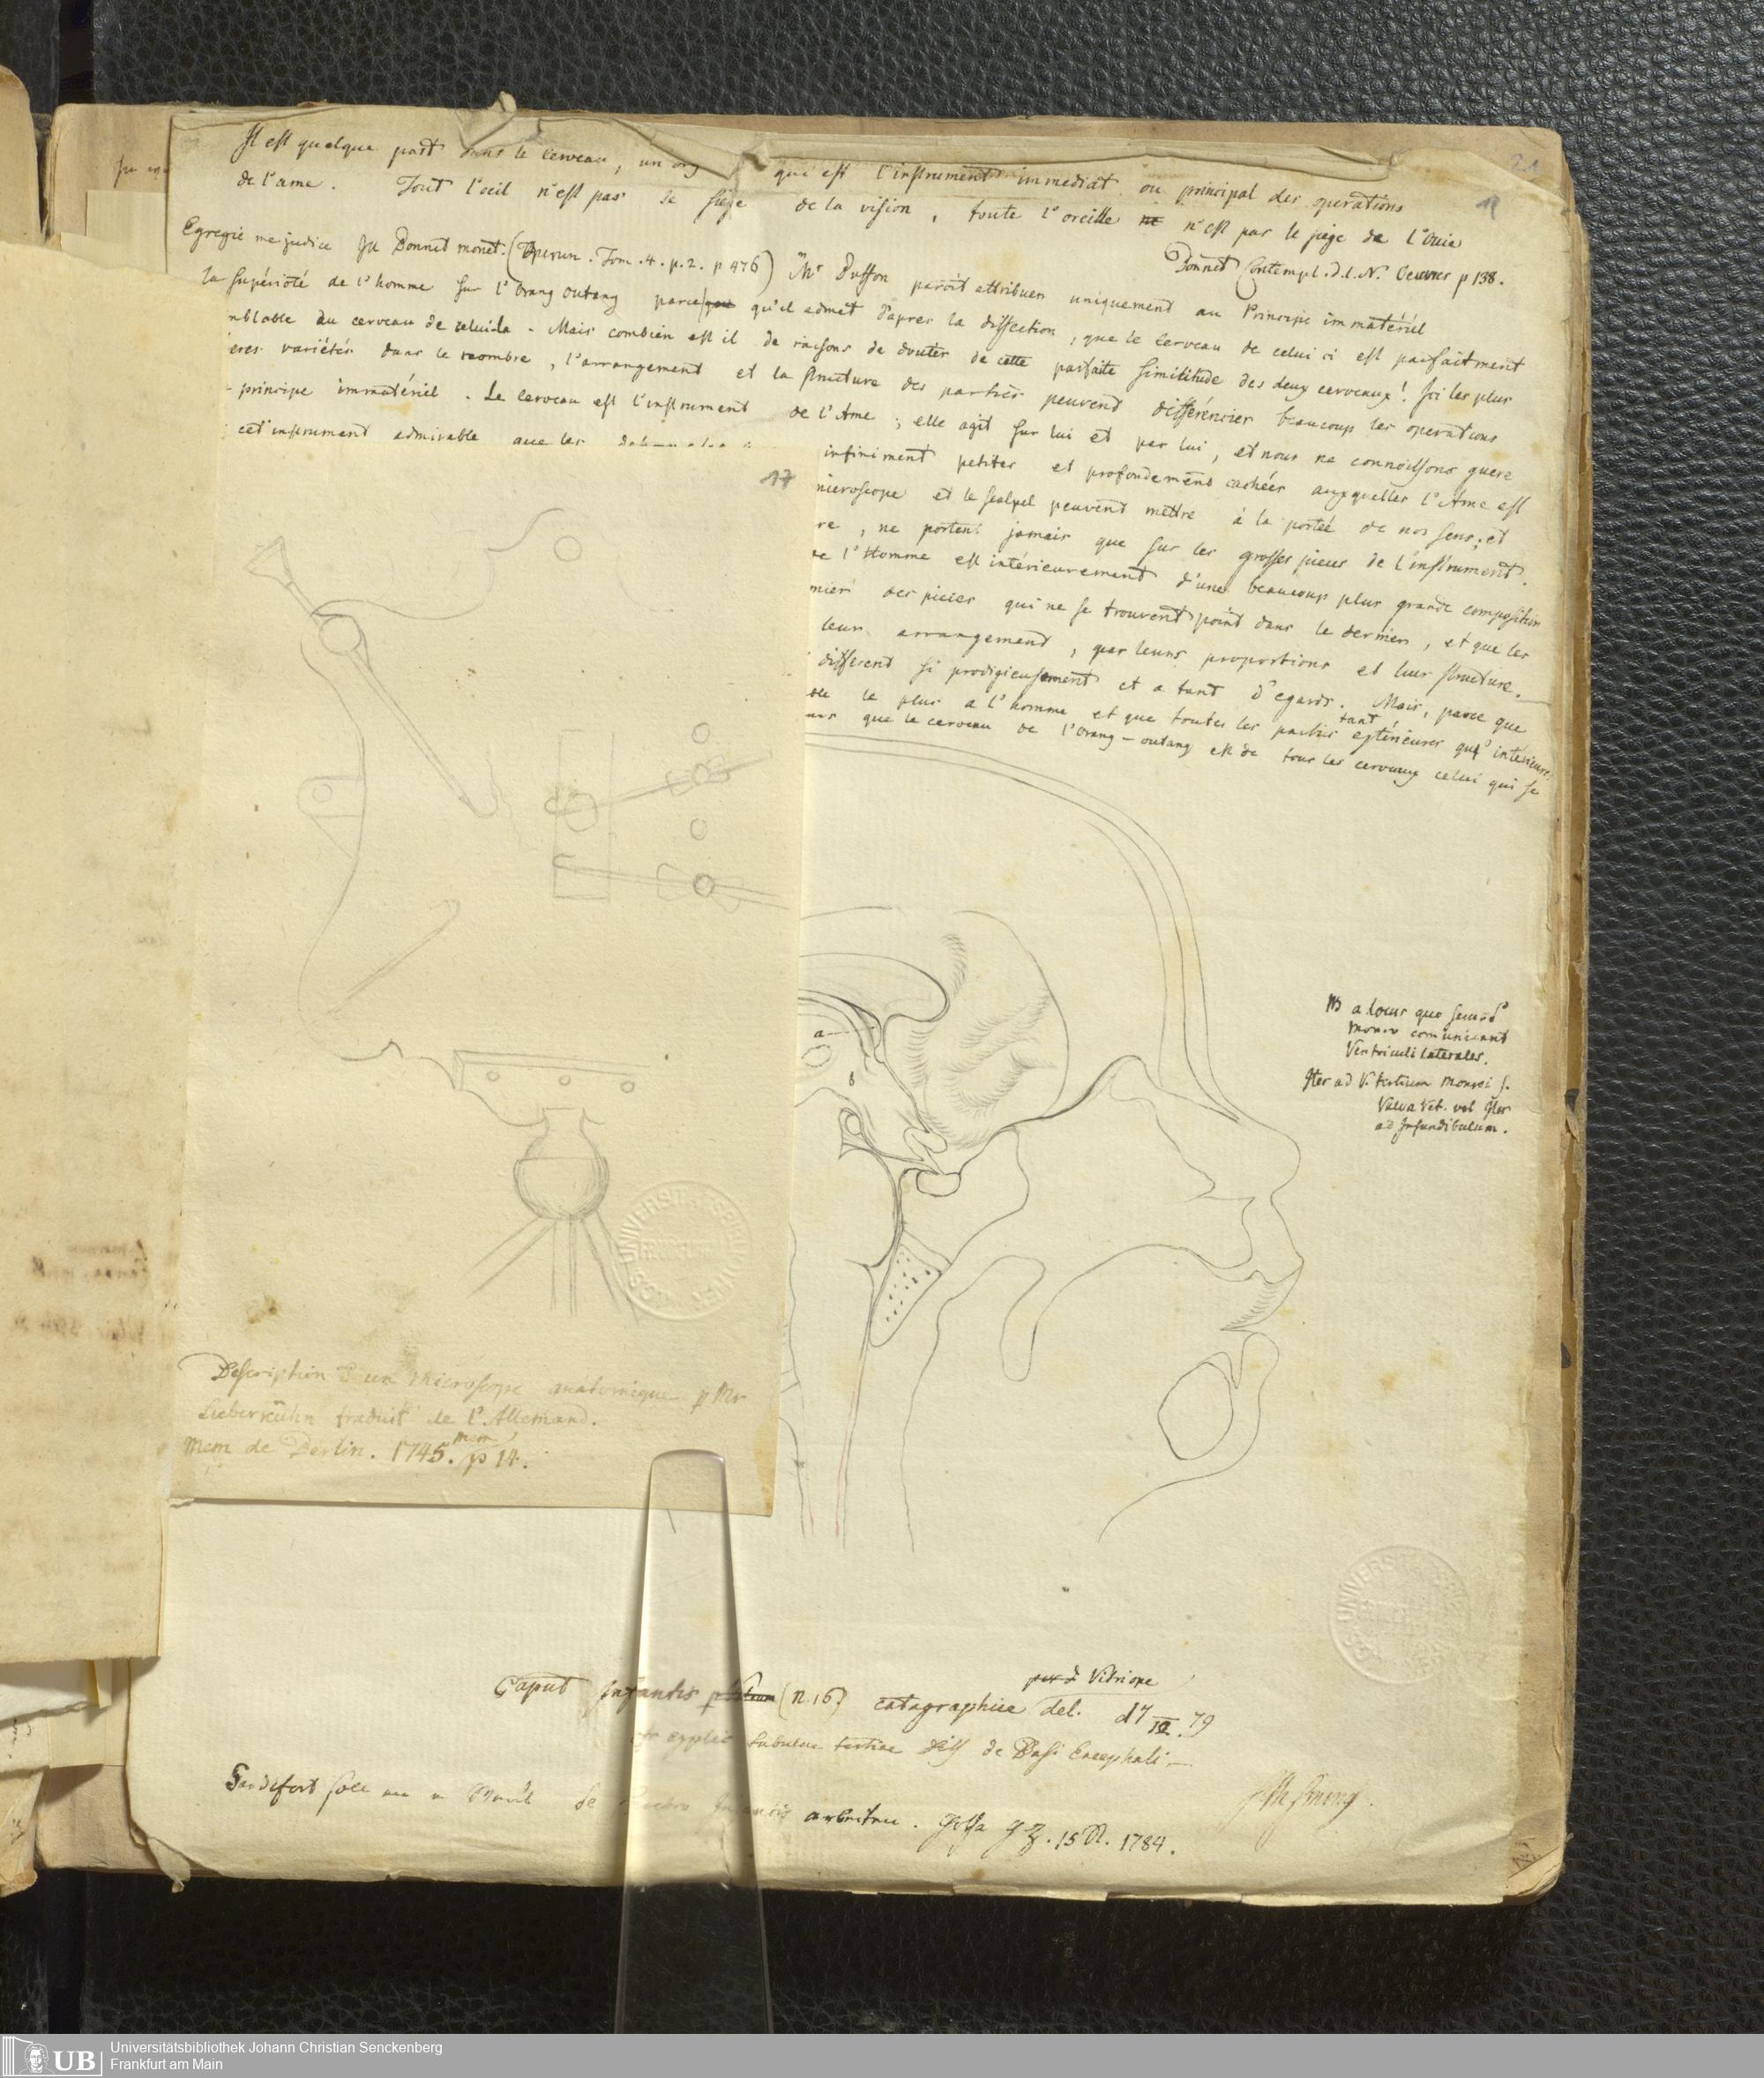 Il est quelque part dans le cerveau, un org qui est l'instrument immediat ou principal des operations
de l'ame. Tout l'oeil n'est pas le siège de la vision, toute l'oreille ne n'est pas le siège de l'Ouie
Bonnet Contempl. d. l. N. Oeuvres p 138.
Egregie me judice Bonnet monet. ( Tom. 4. p. 2. p 476) Mr Buffon paroit attribuer uniquement au Principe immatériel
la supérioté de l'homme sur l'Orang outang parce que qu'il admet d'apres la dissection, que le cerveau de celui ci est parfaitment
mblable au cerveau de celui la. Mais combien est il de raisons de douter de cette parfaite similitude des deux cerveaux! Ici les plus
eres variétés dans le nombre, l'arrangement et la structure des parties peuvent différencier beaucoup les operations
principe immatériel. Le cerveau est l'instrument de l'Ame; elle agit sur lui et par lui, et nous ne connoissons guere
cet instrument admirable que les
infiniment petites et profondement cachées auxquelles l'Ame est
17
microscope et le scalpel peuvent mettre à la portée de nos sens; et
re, ne portent jamais que sur les grosses pieces de l'instrument.
ue l'Homme est intérieurement d'une beaucoup plus grande composition
mier des pieces qui ne se trouvent point dans le dernier, et que les
leur arrangement, par leurs proportions et leur structure.
different si prodigieusement et a tant d'egards. Mais, parce que
ble le plus a l'homme et que toutes les parties tant extérieures qu' intérieures
que le cerveau de l'Orang-outang est de tous les cerveaux celui qui se
NB a locus quo
Monro comunicant
Ventriculi laterales.
Iter ad V. tertium Monroi s.
Vulva Vet. vel Iter
ad Infundibulum.
a
b
Description d'un Microscope anatomique p Mr
Lieberkühn traduit de l'Allemand.
Mem de Berlin. 1745. p 14.
Caput Infantis (n. 16) catagraphice del. Vitrione 79
explic tabulae tertiae Diss de Basi Encephali
Sandifort arbitru. 15 1784.
UB
Universitätsbibliothek Johann Christian Senckenberg
Frankfurt am Main